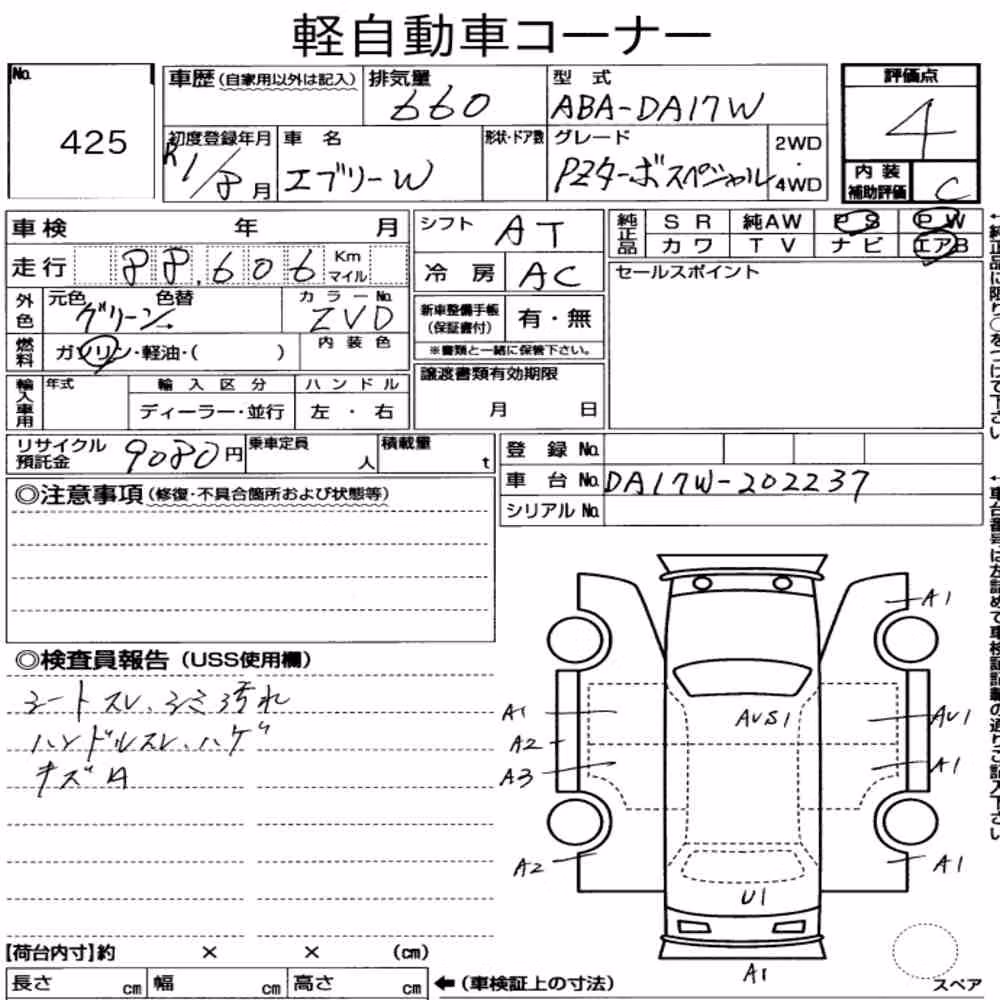 軽自動車コーナー
No. 425
車歴(自家用以外は記入) 排気量 660 型式 ABA-DA17W
初度登録年月 R1/8月 車名 エブリーW 形状・ドア数 グレード PZターボスペシャル 2WD・4WD
評価点 4
内装補助評価 C
車検 年 月
走行 88,606 Km マイル
外色 元色 グリーン 色替 カラーNo. ZVD
燃料 ガソリン・軽油・( ) 内装色
輸入車用 年式 輸入区分 ハンドル
ディーラー・並行 左・右
シフト AT
冷房 AC
新車整備手帳(保証書付) 有・無
※書類と一緒に保管下さい。
譲渡書類有効期限
月 日
純正品 SR 純AW PS PW
カワ TV ナビ エアB
セールスポイント
リサイクル預託金 9080円 乗車定員 人 積載量 t
登録No.
車台No. DA17W-202237
シリアルNo.
◎注意事項(修復・不具合箇所および状態等)
◎検査員報告(USS使用欄)
シートスレ、シミ汚れ
ハンドルスレ、ハゲ
キズ
A1
A1 AVS1 AU1
A2
A3 A1
A2 A1
U1
A1
【荷台内寸】約 × × (cm)
長さ cm 幅 cm 高さ cm ←(車検証上の寸法)
スペア
←純正品に限り○をつけて下さい
←車台番号は左詰めで車検証記載の通りご記入下さい